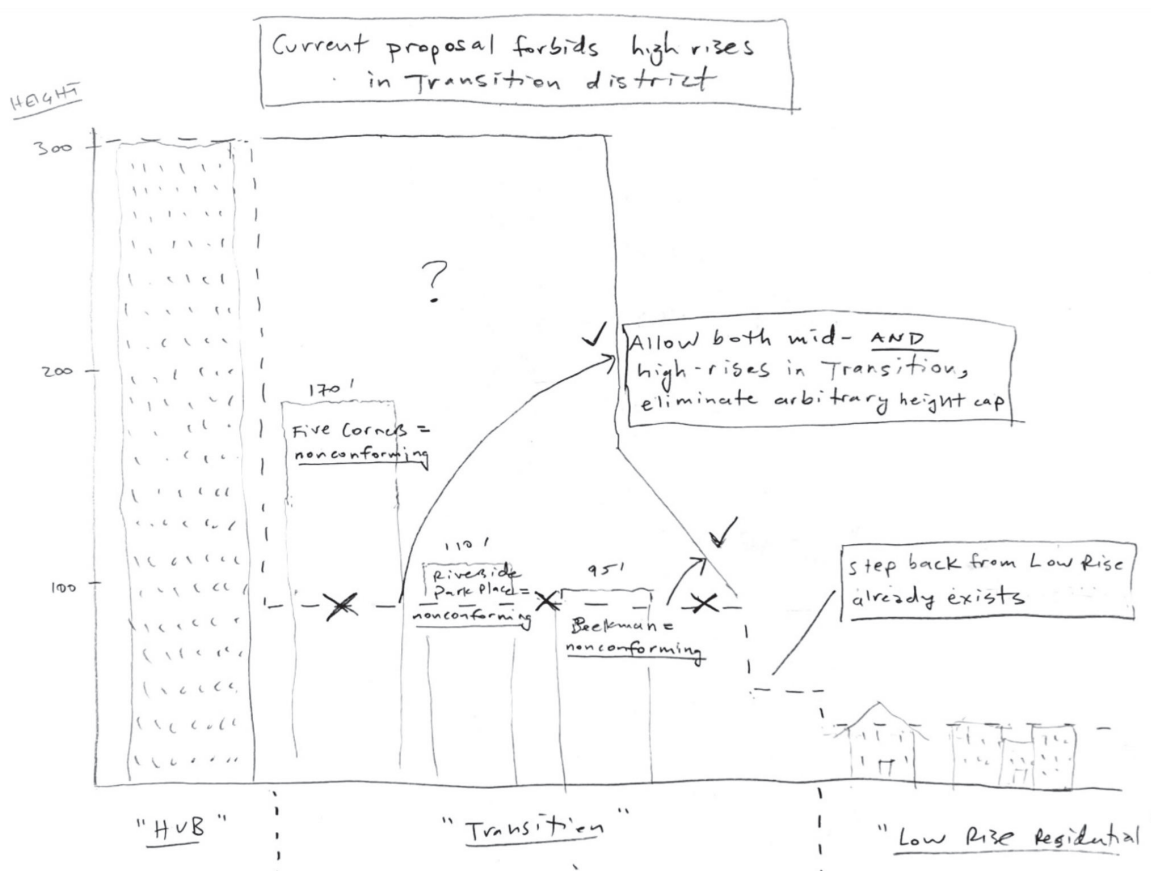 Current proposal forbids high rises
in Transition district
HEIGHT
300
200
100
?
170'
Five Corners =
nonconforming
Allow both mid- AND
high-rises in Transition,
eliminate arbitrary height cap
110'
Riverside
Park Place =
nonconforming
95'
Beekman =
nonconforming
Step back from Low Rise
already exists
"HUB"
"Transition"
"Low Rise Residential